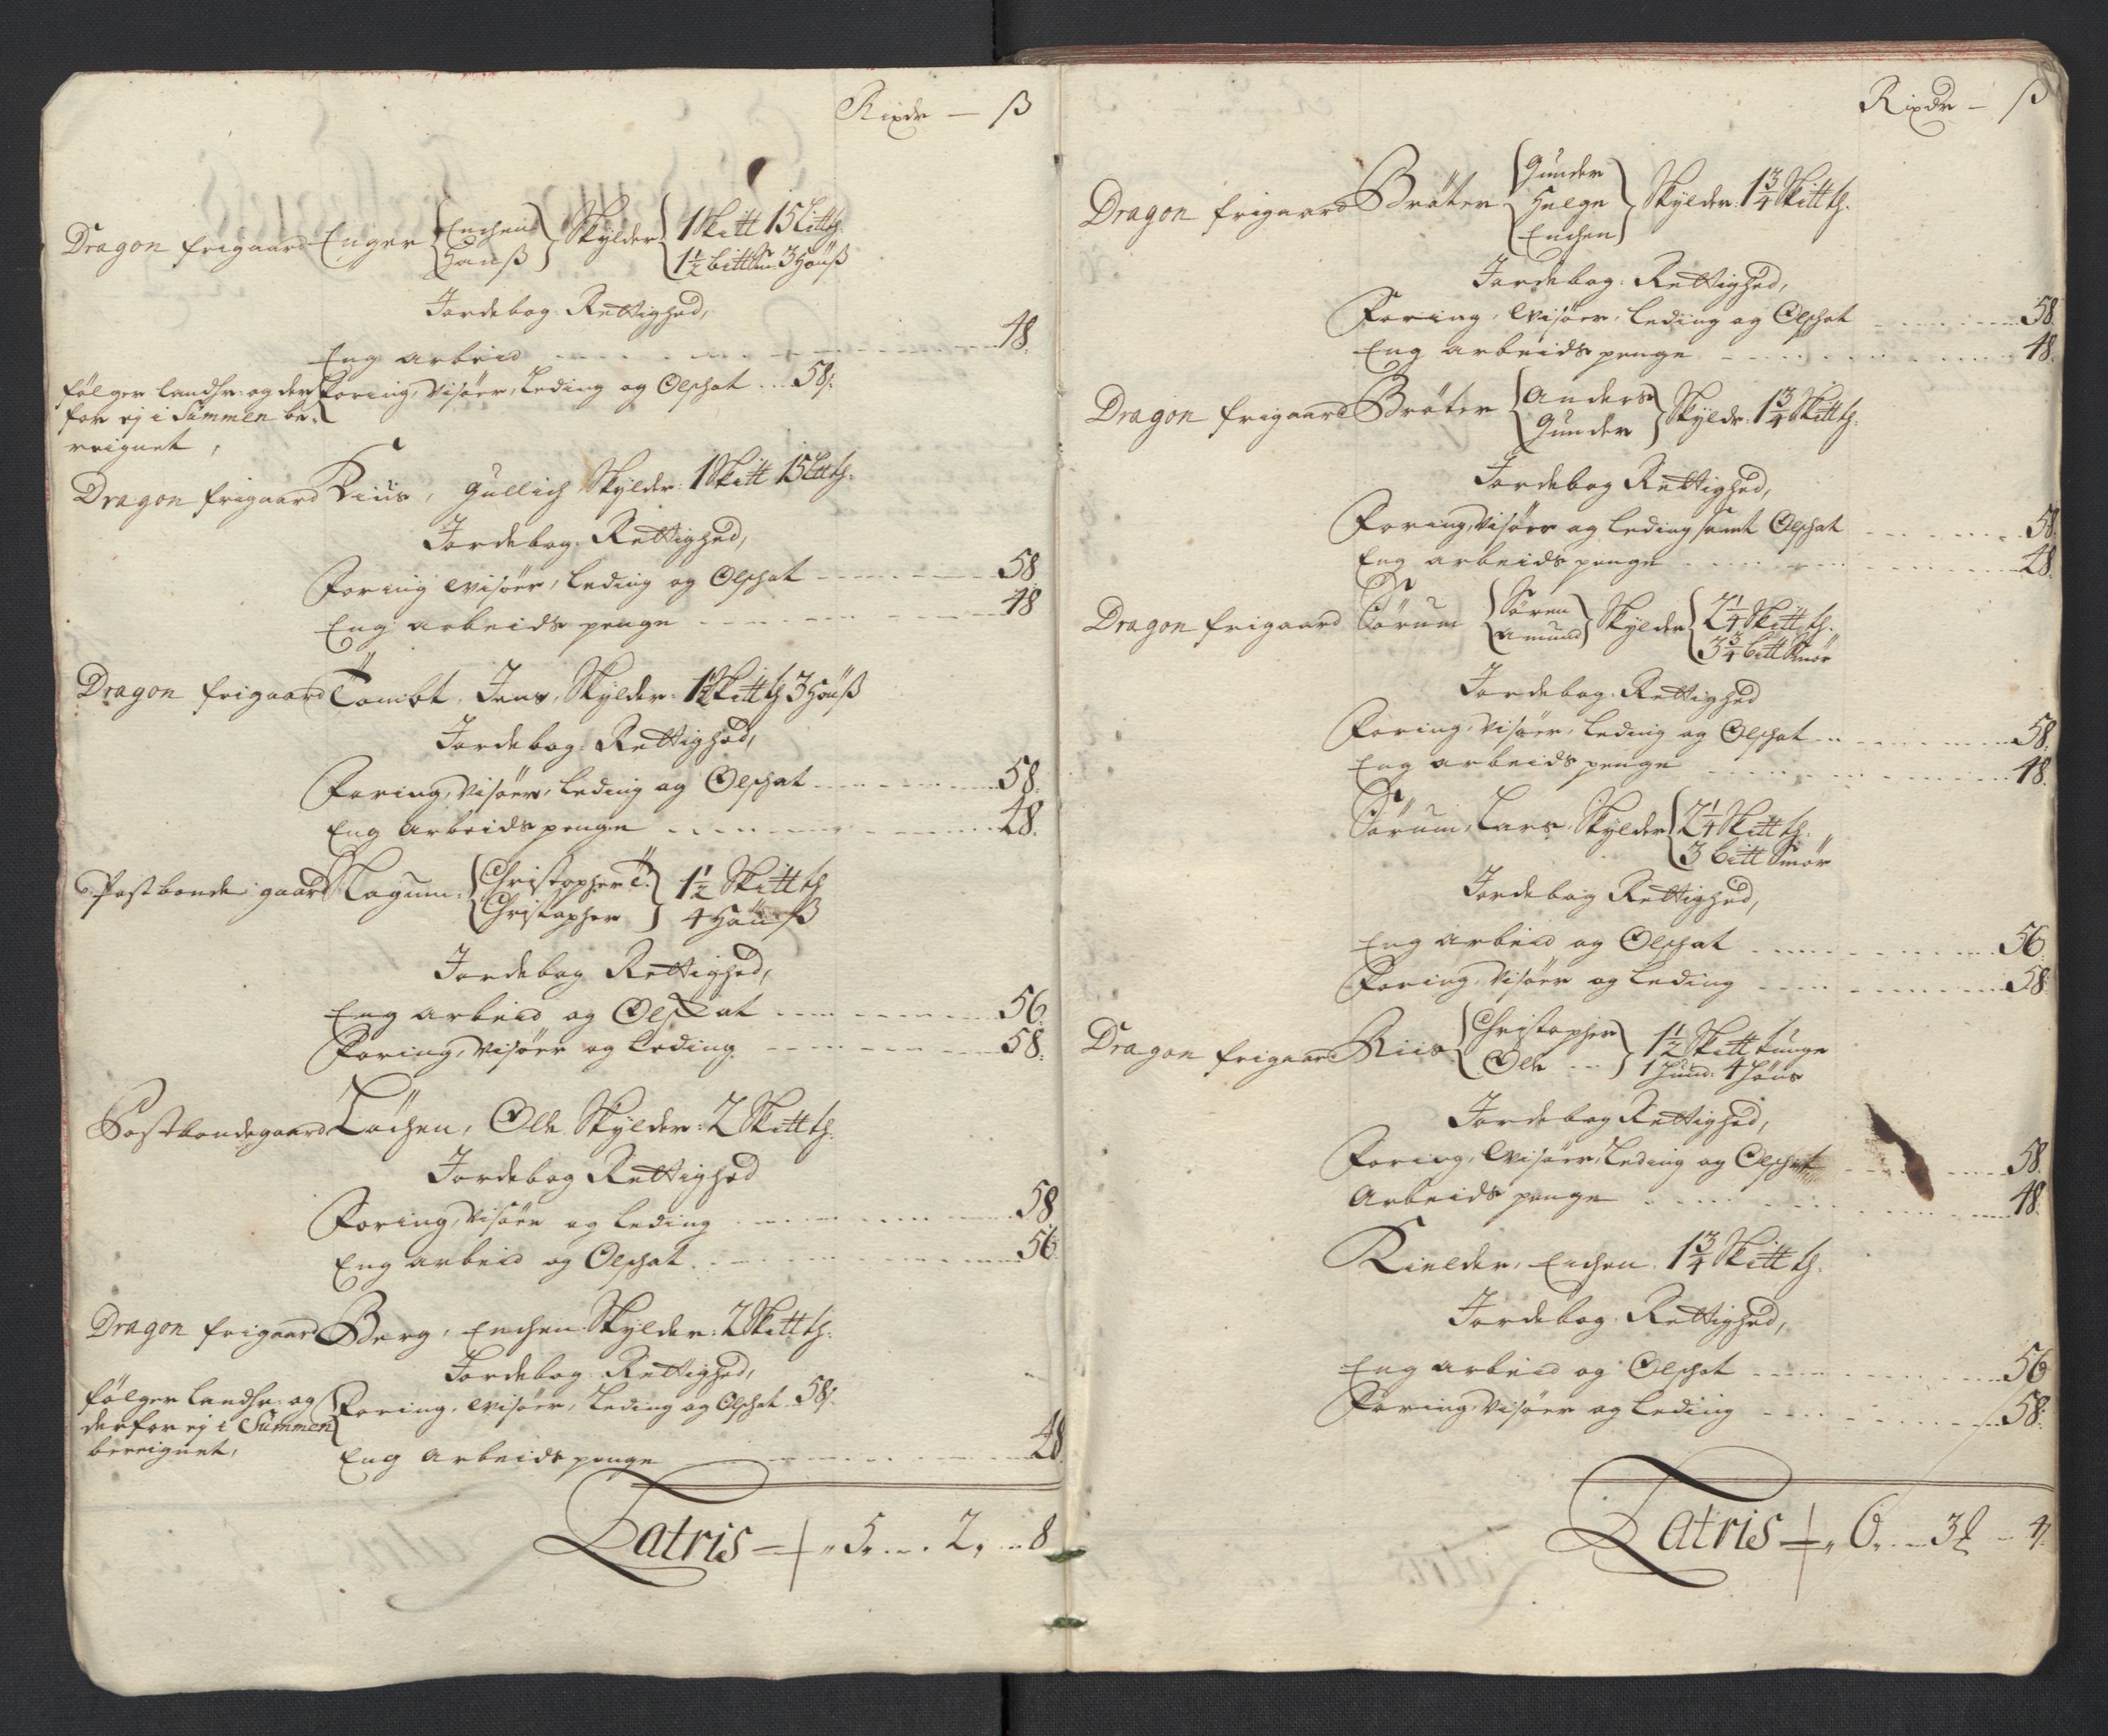 Rixdr — ß
Dragon frigaard Enger { Enchen Hanß } Skylder { 1 Skitt 15 Littʉ.
1½ bitt Sm: 3 Høuß
Jordebog: Rettighed,
Eng arbeid 48.
følger landhr: og der
for ej i Summen be-
reignet,
Foring, Visøer, Leding og Olphat 58ß.
Dragon frigaard Riiis, Gullich Skylder: 1 Skitt 15 Littʉ.
Jordebog: Rettighed,
Foring Wisøer, Leding og Olphat 58
Eng arbeids penge 48
Dragon frigaard Tombt, Jens, Skylder: 1½ Skittʉ 3 Høuß
Jordebog: Rettighed,
Foring, Visøer, Leding og Olphat 58.
Eng Arbeids penge 48.
Postbonde gaard Nagum: { Christopher T: Christopher } 1½ Skittʉ
4 Høuß
Jordebog Rettighed,
Eng arbeid og Olphat 56.
Foring, Visøer og Leding 58.
Postbondegaard Løchen, Ole Skylder: 2 Skittʉ.
Jordebog Rettighed
Foring, Visøer og Leding 58
Eng arbeid og Olphat 56
Dragon frigaard Berg, Enchen Skylder: 2 Skittʉ.
Jordebog: Rettighed,
følger landhr: og
derfor ej i Summen
bereignet,
Foring, Wisøer, Leding og Olphat 58ß.
Eng Arbeids penge 48
Latris 5 2 8
Rixdr — ß
Dragon frigaard Brøter { Gunder Helge Enchen } Skylder: 1¾ Skittʉ.
Jordebog: Rettighed,
Foring, Wisøer, Leding og Olphat 58
Eng arbeids penge 48.
Dragon frigaard Brøter { Anders Gunder } Skyldr: 1¾ Skittʉ.
Jordebog Rettighed,
Foring, Visøer og Leding samt Olphat 58
Eng arbeids penge 48.
Dragon frigaard Sørum { Søren Amund } Skylder { 2¼ Skittʉ.
3¾ bitt Smør
Jordebog: Rettighed
Foring, Visøer, Leding og Olphat 58.
Eng arbeids penge 48
Sørum, Lars Skylder { 2¼ Skittʉ.
3 bitt Smør
Jordebog Rettighed,
Eng arbeid og Olphat 56
Foring, Visøer og Leding 58
Dragon frigaard Riis { Christopher Ole } 1½ Skitt tunge
1 Hund: 4 Høns
Jordebog Rettighed,
Foring, Wisøer, Leding og Olphat 58
Arbeids penge 48.
Kielder, Enchen 1¾ Skittʉ.
Jordebog: Rettighed,
Eng arbeid og Olphat 56
Foring, Visøer og Leding 58.
Latris 6 3 4